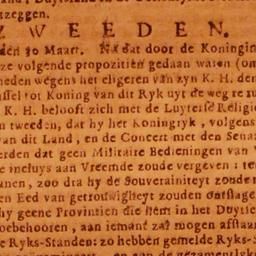 tzeggen.
ZWEEDEN.
den 30 Maart. Na dat door de Koningin
ze volgende propozitien gedaan waren (om
heden wegens het eligeren van zyn K. H. den
ssel tot Koning van dit Ryk uyt de weg te
. K. H. belooft sich met de Luyterse Religie
n tweeden, dat hy het Koningryk, volgens
van dit Land, en de Concert met den Senaa
erden dat geen Militaire Bedieningen van V
e incluys aan Vreemde zoude vergeven: ten
unen, zoo dra hy de Souverainiteyt zonder
en Eed van getrouwigheyt zouden ontslage
hy geene Provintien die hem in het Duytse
toebehooren, aan iemant zal mogen afstaan
e Ryks-Standen: zo hebben gemelde Ryks-S
en aan de gezamentlyke